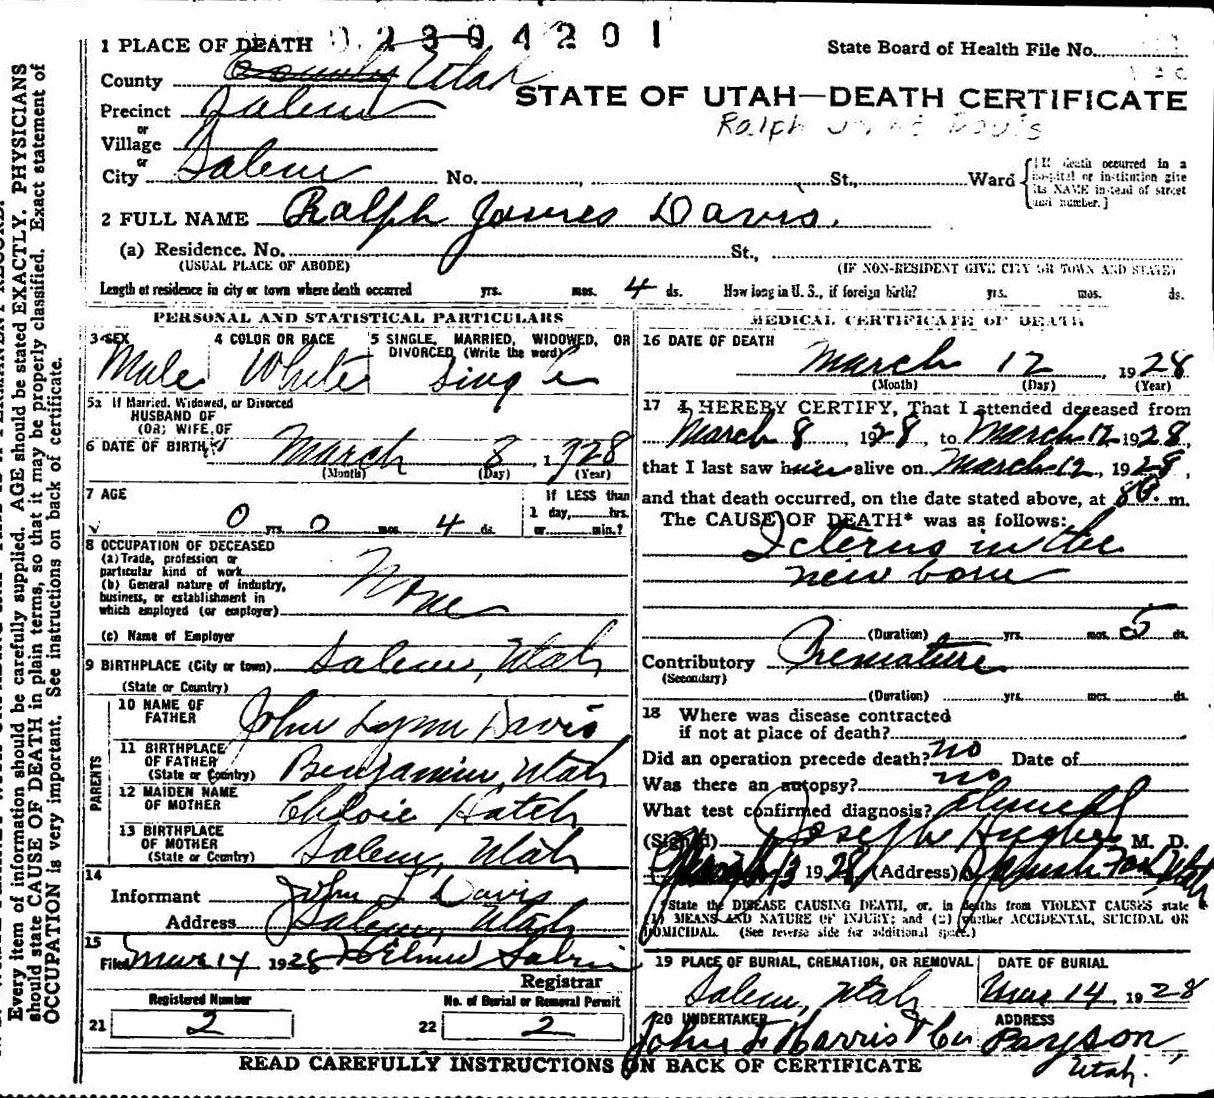 1 PLACE OF DEATH 0 2 3 0 4 2 0 1
State Board of Health File No.
County Utah
STATE OF UTAH—DEATH CERTIFICATE
Precinct Salem
Ralph Davis
or
Village
or
City Salem No. St., Ward
{[If death occurred in a hospital or institution give its NAME instead of street and number.]
2 FULL NAME Ralph James Davis.
(a) Residence. No. St.,
(USUAL PLACE OF ABODE) (IF NON-RESIDENT GIVE CITY OR TOWN AND STATE)
Length of residence in city or town where death occurred yrs. mos. 4 ds. How long in U. S., if foreign birth? yrs. mos. ds.
PERSONAL AND STATISTICAL PARTICULARS
3 SEX 4 COLOR OR RACE 5 SINGLE, MARRIED, WIDOWED, OR
DIVORCED (Write the word)
Male White Single
5a If Married, Widowed, or Divorced
HUSBAND OF
(OR) WIFE OF
6 DATE OF BIRTH March 8, 1928
(Month) (Day) (Year)
7 AGE If LESS than
1 day, hrs.
0 yrs. 0 mos. 4 ds. or min.?
8 OCCUPATION OF DECEASED
(a) Trade, profession or
particular kind of work
(b) General nature of industry,
business, or establishment in
which employed (or employer) None
(c) Name of Employer
9 BIRTHPLACE (City or town) Salem, Utah
(State or Country)
PARENTS
10 NAME OF
FATHER John Lynn Davis
11 BIRTHPLACE
OF FATHER
(State or Country) Benjamin, Utah
12 MAIDEN NAME
OF MOTHER Chloie Hatch
13 BIRTHPLACE
OF MOTHER
(State or Country) Salem, Utah
14
Informant John L Davis
Address Salem, Utah
15
Filed Mar 14 1928
Registrar
Registered Number No. of Burial or Removal Permit
21 2 22 2
MEDICAL CERTIFICATE OF DEATH
16 DATE OF DEATH
March 12, 1928
(Month) (Day) (Year)
17 I HEREBY CERTIFY, That I attended deceased from
March 8, 1928, to March 12 1928,
that I last saw him alive on March 12, 1928,
and that death occurred, on the date stated above, at m.
The CAUSE OF DEATH* was as follows:
Icterus in the
new born
(Duration) yrs. mos. 5 ds.
Contributory Premature
(Secondary)
(Duration) yrs. mos. ds.
18 Where was disease contracted
if not at place of death?
Did an operation precede death? no Date of
Was there an autopsy? no
What test confirmed diagnosis?
(Signed) Joseph Hughes M. D.
March 13 1928 (Address) Spanish Fork, Utah
*State the DISEASE CAUSING DEATH, or, in deaths from VIOLENT CAUSES state
(1) MEANS AND NATURE OF INJURY; and (2) whether ACCIDENTAL, SUICIDAL OR
HOMICIDAL. (See reverse side for additional space.)
19 PLACE OF BURIAL, CREMATION, OR REMOVAL DATE OF BURIAL
Salem, Utah Mar 14 1928
20 UNDERTAKER ADDRESS
John F Harris Payson
Utah.
READ CAREFULLY INSTRUCTIONS ON BACK OF CERTIFICATE
Every item of information should be carefully supplied. AGE should be stated EXACTLY. PHYSICIANS
should state CAUSE OF DEATH in plain terms, so that it may be properly classified. Exact statement of
OCCUPATION is very important. See instructions on back of certificate.